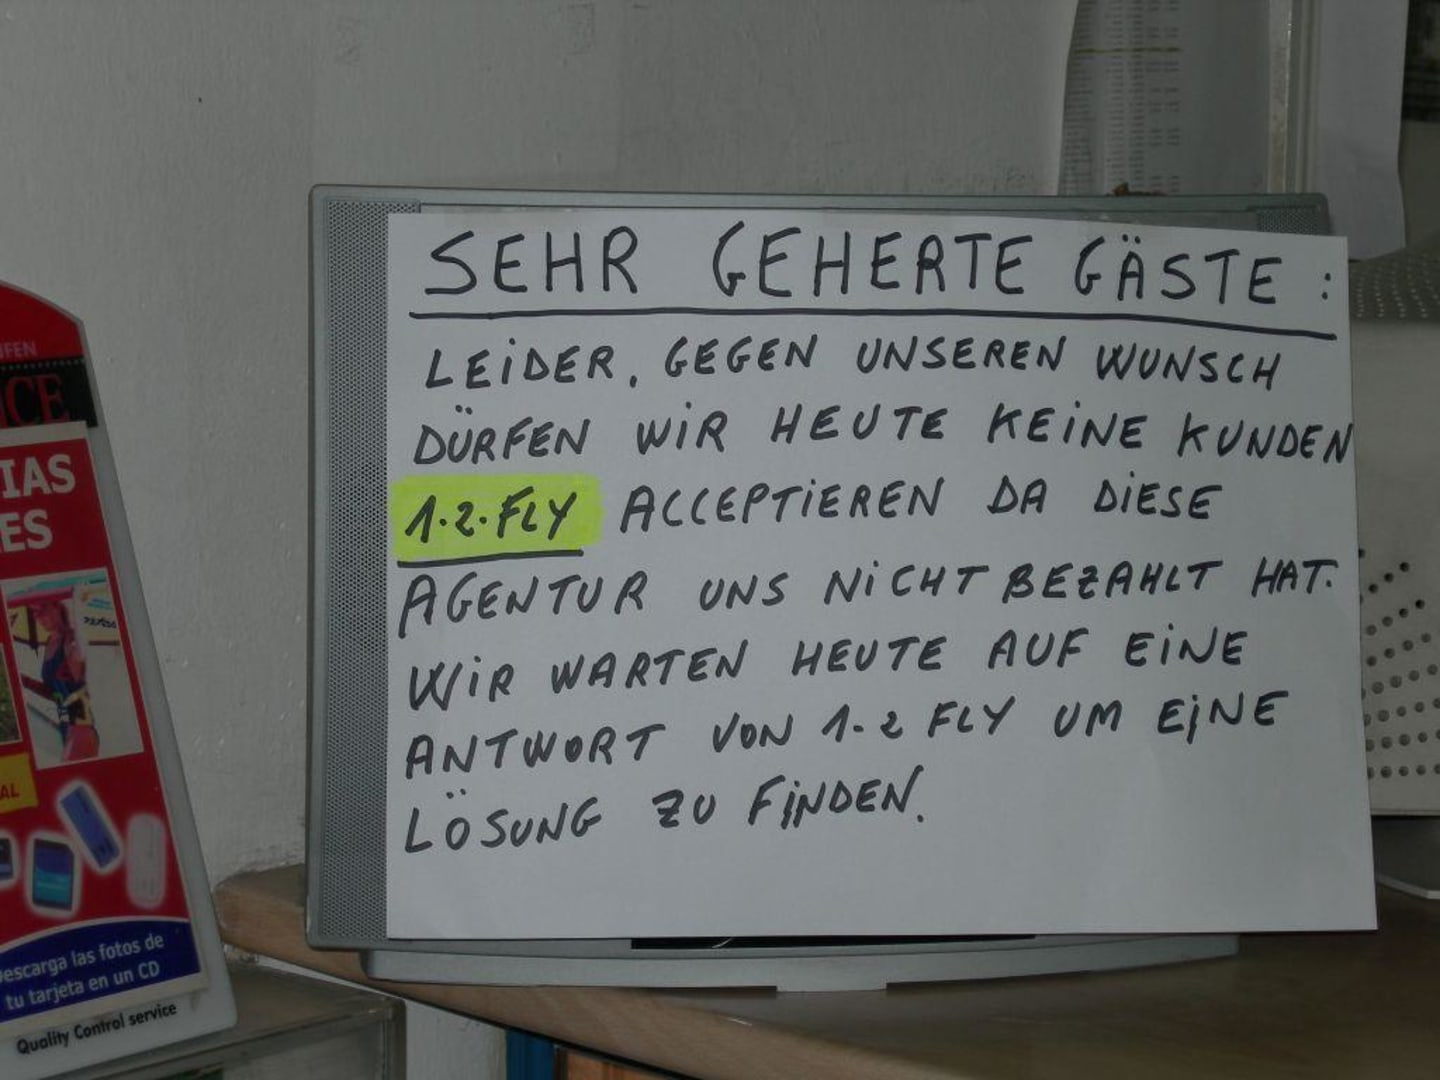 SEHR GEHERTE GÄSTE:
LEIDER, GEGEN UNSEREN WUNSCH
DÜRFEN WIR HEUTE KEINE KUNDEN
1.2.FLY ACCEPTIEREN DA DIESE
AGENTUR UNS NICHT BEZAHLT HAT.
WIR WARTEN HEUTE AUF EINE
ANTWORT VON 1-2 FLY UM EINE
LÖSUNG ZU FINDEN.
IAS
ES
AL
Descarga las fotos de
tu tarjeta en un CD
Quality Control service